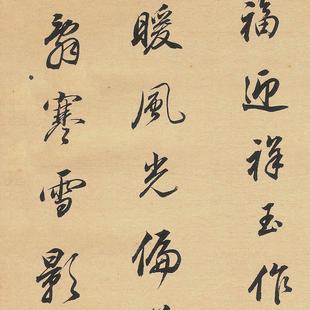 福迎祥玉作
暖風光偏
寒雪影